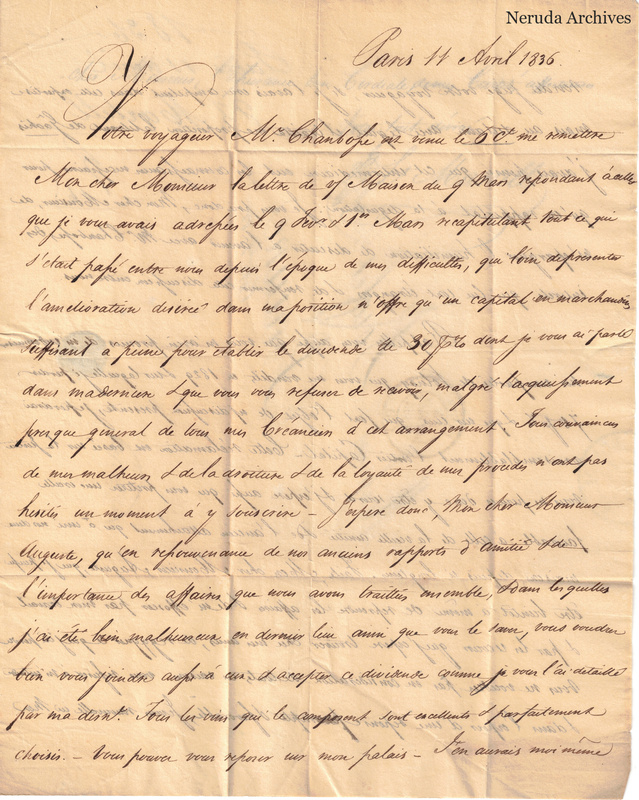 Neruda Archives
Paris 11 Avril 1836.
Votre voyageur Mr. Chanbose est venu le 6 Ct. me remettre
Mon cher Monsieur la lettre de vf Maison du 9 Mars repondant à celles
que je vous avais adressées le 9 Fevr. & 1er Mars recapitulant tout ce qui
s'était passé entre nous depuis l'époque de mes difficultes, qui loin de presenter
l'amelioration desireé dans ma position n'offre qu'un capital en marchandises
suffisant a peine pour etablir le dividende de 30 P% dont je vous ai parlé
dans ma derniere & que vous vous refuser de recevoir, malgré l'acquiessement
presque general de tous mes Creanciers à cet arrangement; Tous convaincus
de mes malheurs & de la droiture & de la loyauté de mes procedes n'ont pas
hesités un moment à y souscrire - J'espere donc, Mon cher Monsieur
Auguste, qu'en ressouvenance de nos anciens rapports d'amitié & de
l'importance des affaires que nous avons traittés ensemble, & dans lesquelles
j'ai été bien malheureux en dernier lieu ainsi que vous le savez, vous voudrez
bien vous joindre aussi à eux & accepter ce dividende comme je vous l'ai detaillé
par ma dernr. Tous les vins qui le composent sont excellents & parfaitement
choisis. - Vous pouvez vous reposer sur mon palais - J'en aurais moi même